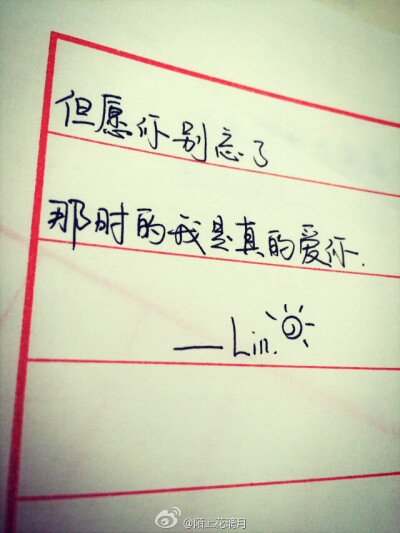 但愿你别忘了
那时的我是真的爱你.
——Lin.
@陌上花晓月